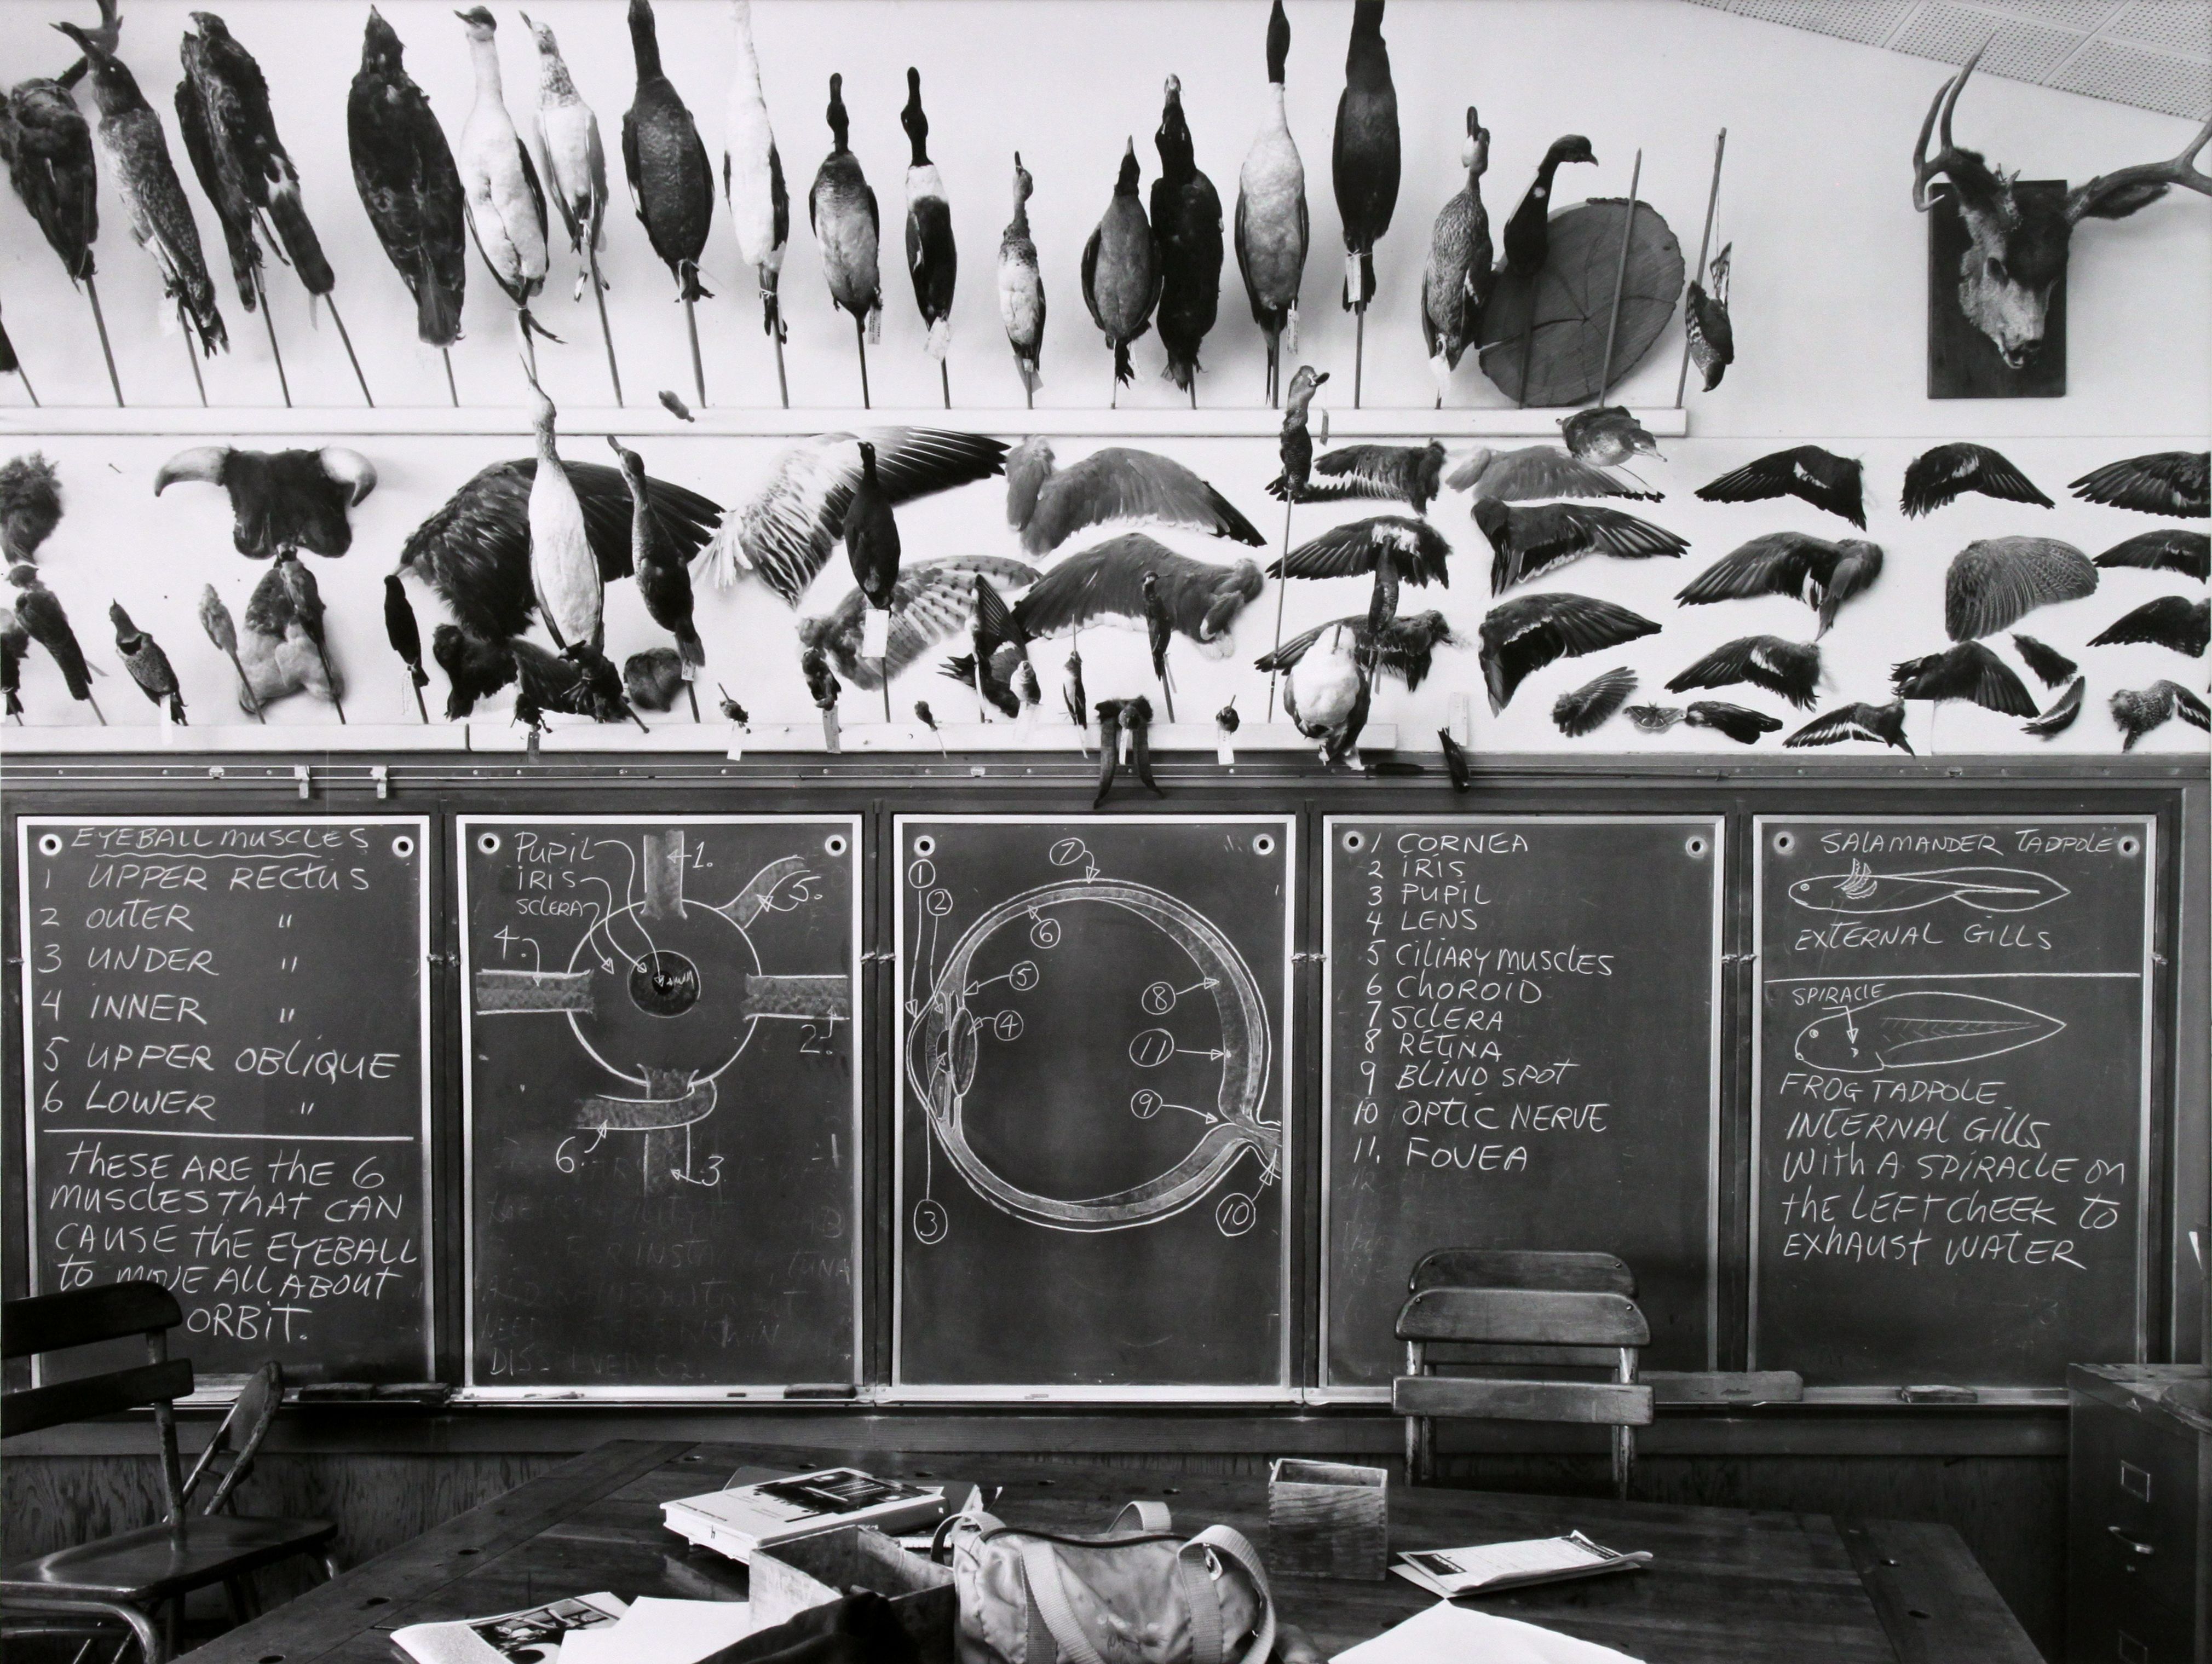 EYEBALL MUSCLES
1 UPPER RECTUS
2 OUTER "
3 UNDER "
4 INNER "
5 UPPER OBLIQUE
6 LOWER "
THESE ARE THE 6
MUSCLES THAT CAN
CAUSE THE EYEBALL
TO MOVE ALL ABOUT
ORBIT.
PUPIL
IRIS
SCLERA
1.
5.
4.
2.
6.
3
7
1
2
6
5
8
4
11
9
3
10
1 CORNEA
2 IRIS
3 PUPIL
4 LENS
5 CILIARY MUSCLES
6 CHOROID
7 SCLERA
8 RETINA
9 BLIND SPOT
10 OPTIC NERVE
11. FOVEA
12
SALAMANDER TADPOLE
EXTERNAL GILLS
SPIRACLE
FROG TADPOLE
INTERNAL GILLS
WITH A SPIRACLE ON
THE LEFT CHEEK TO
EXHAUST WATER